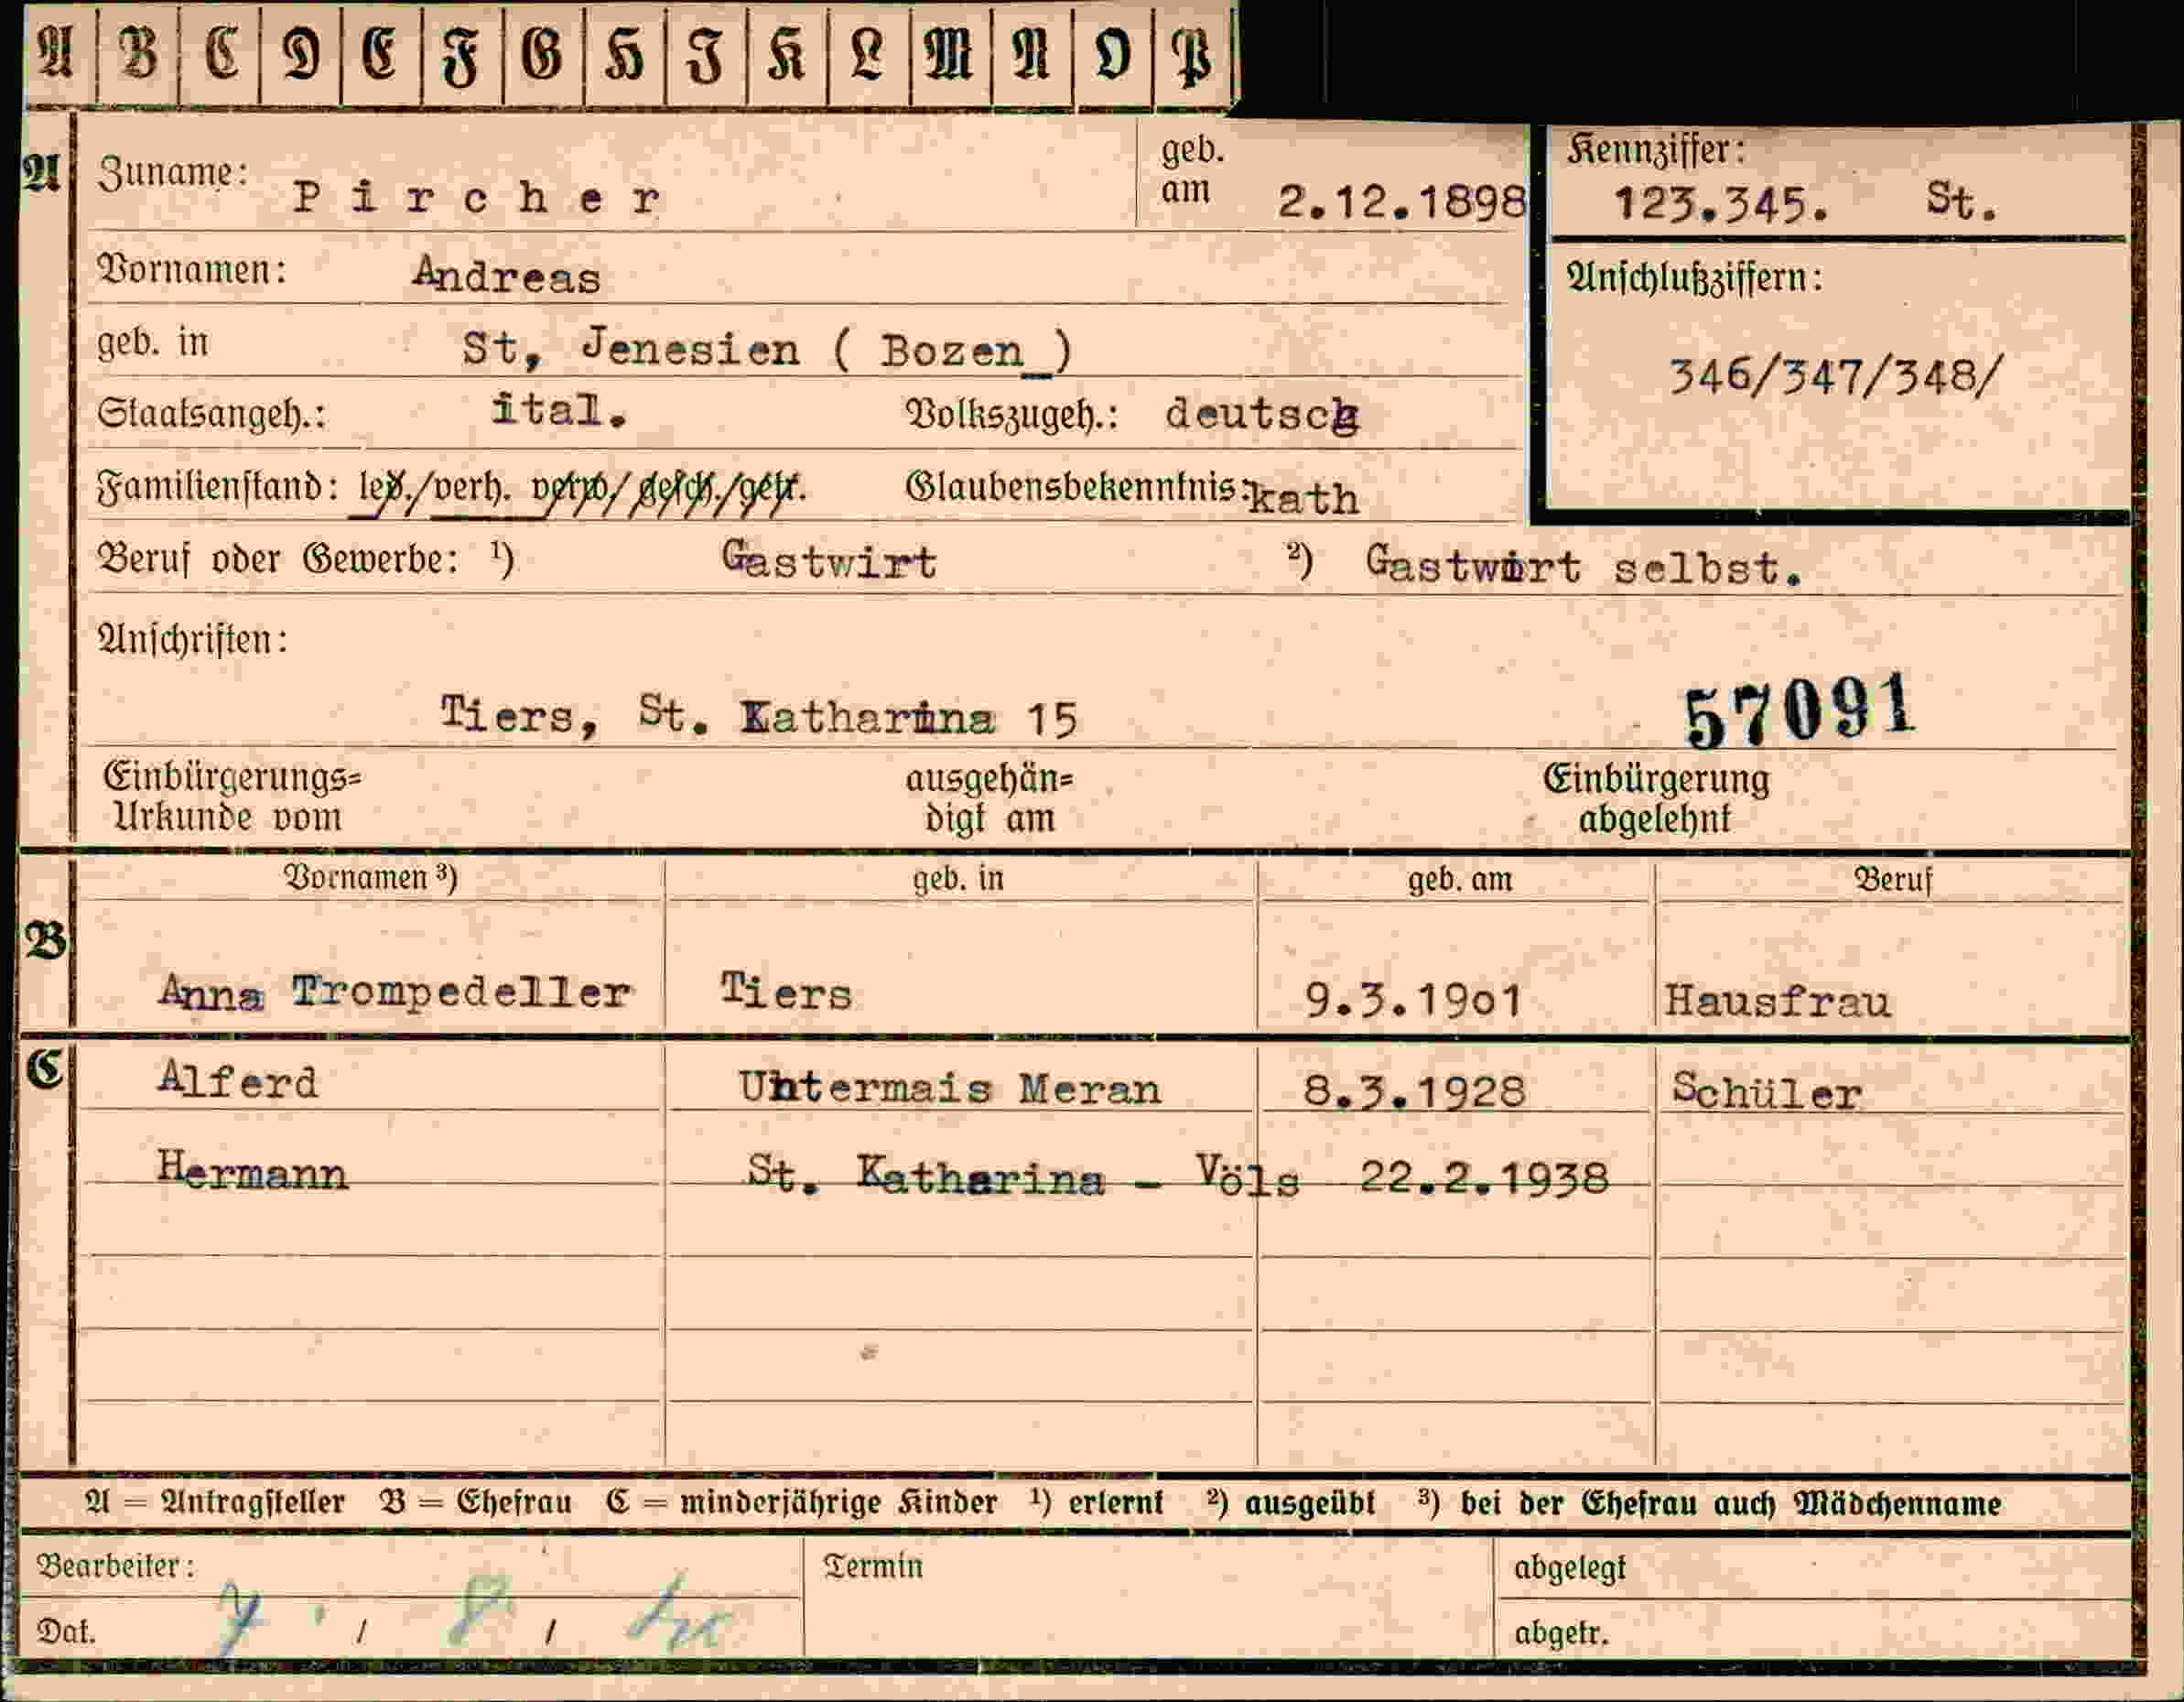 A B C D E F G H I K L M N O P
A Zuname: Pircher geb. am 2.12.1898 Kennziffer: 123.345. St.
Vornamen: Andreas Anschlußziffern:
geb. in St, Jenesien ( Bozen_) 346/347/348/
Staatsangeh.: ital. Volkszugeh.: deutsch
Familienstand: led./verh. verw/gesch./getr. Glaubensbekenntnis: kath
Beruf oder Gewerbe: ¹) Gastwirt ²) Gastwirt selbst.
Anschriften:
Tiers, St. Katharina 15 57091
Einbürgerungs= ausgehän= Einbürgerung
Urkunde vom digt am abgelehnt
Vornamen ³) geb. in geb. am Beruf
B
Anna Trompedeller Tiers 9.3.19o1 Hausfrau
C Alferd Untermais Meran 8.3.1928 Schüler
Hermann St. Katharina - Völs 22.2.1938
A = Antragsteller B = Ehefrau C = minderjährige Kinder ¹) erlernt ²) ausgeübt ³) bei der Ehefrau auch Mädchenname
Bearbeiter: Termin abgelegt
Dat. 7. / 8. / abgetr.